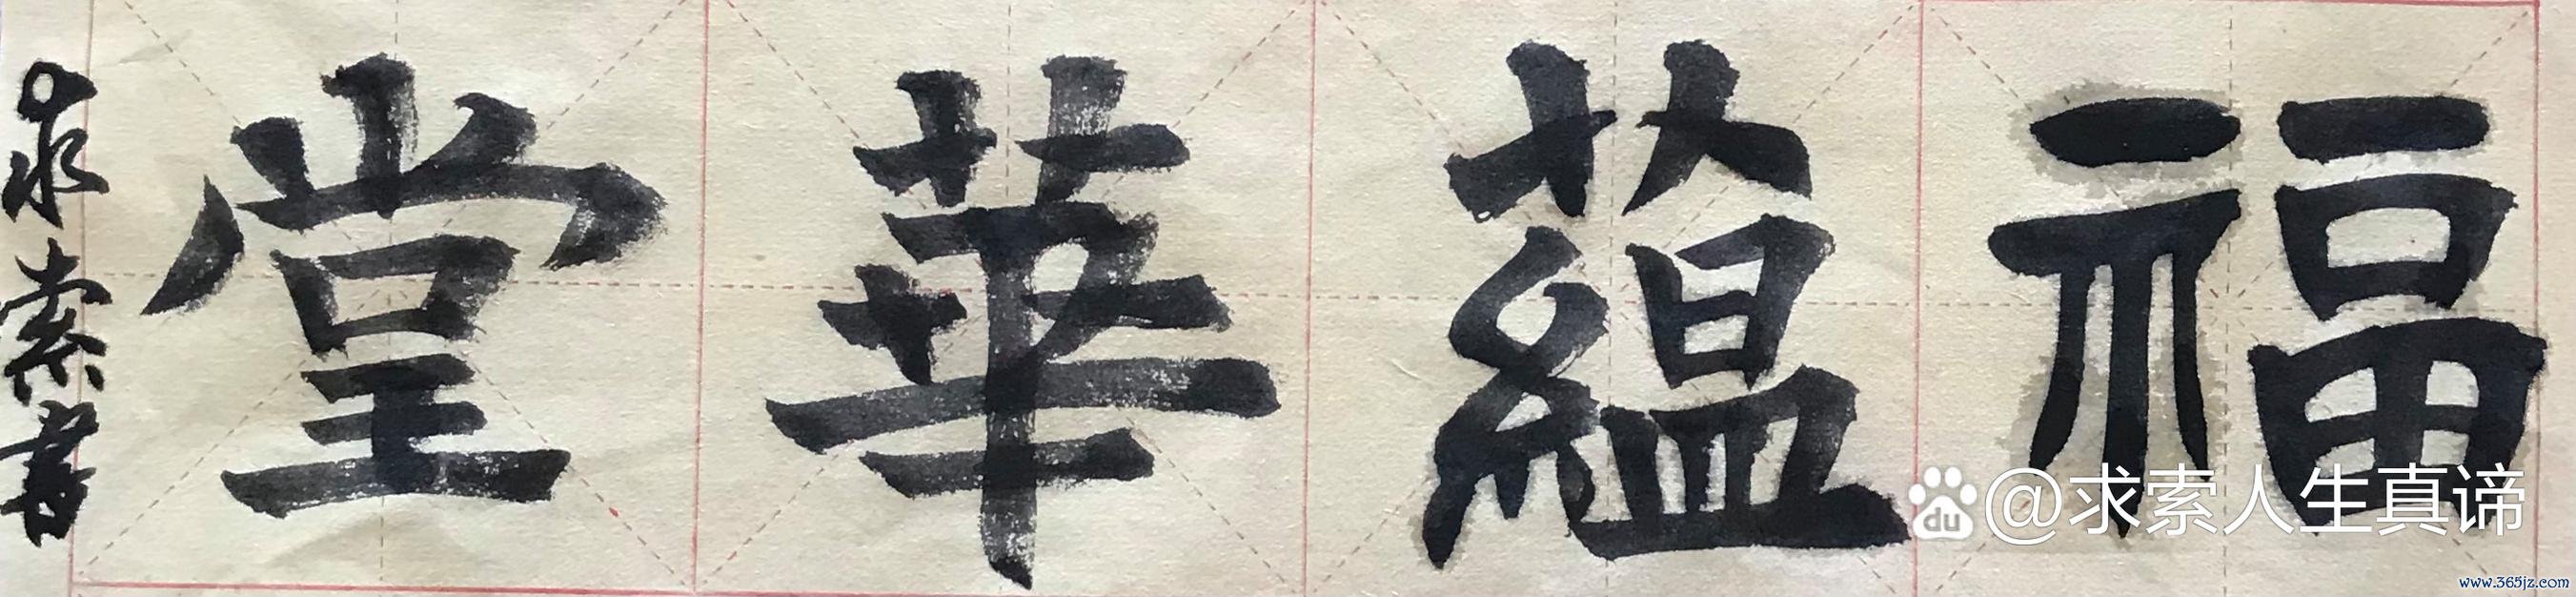 福蘊華堂
求索書
du @求索人生真谛
www.365jz.com